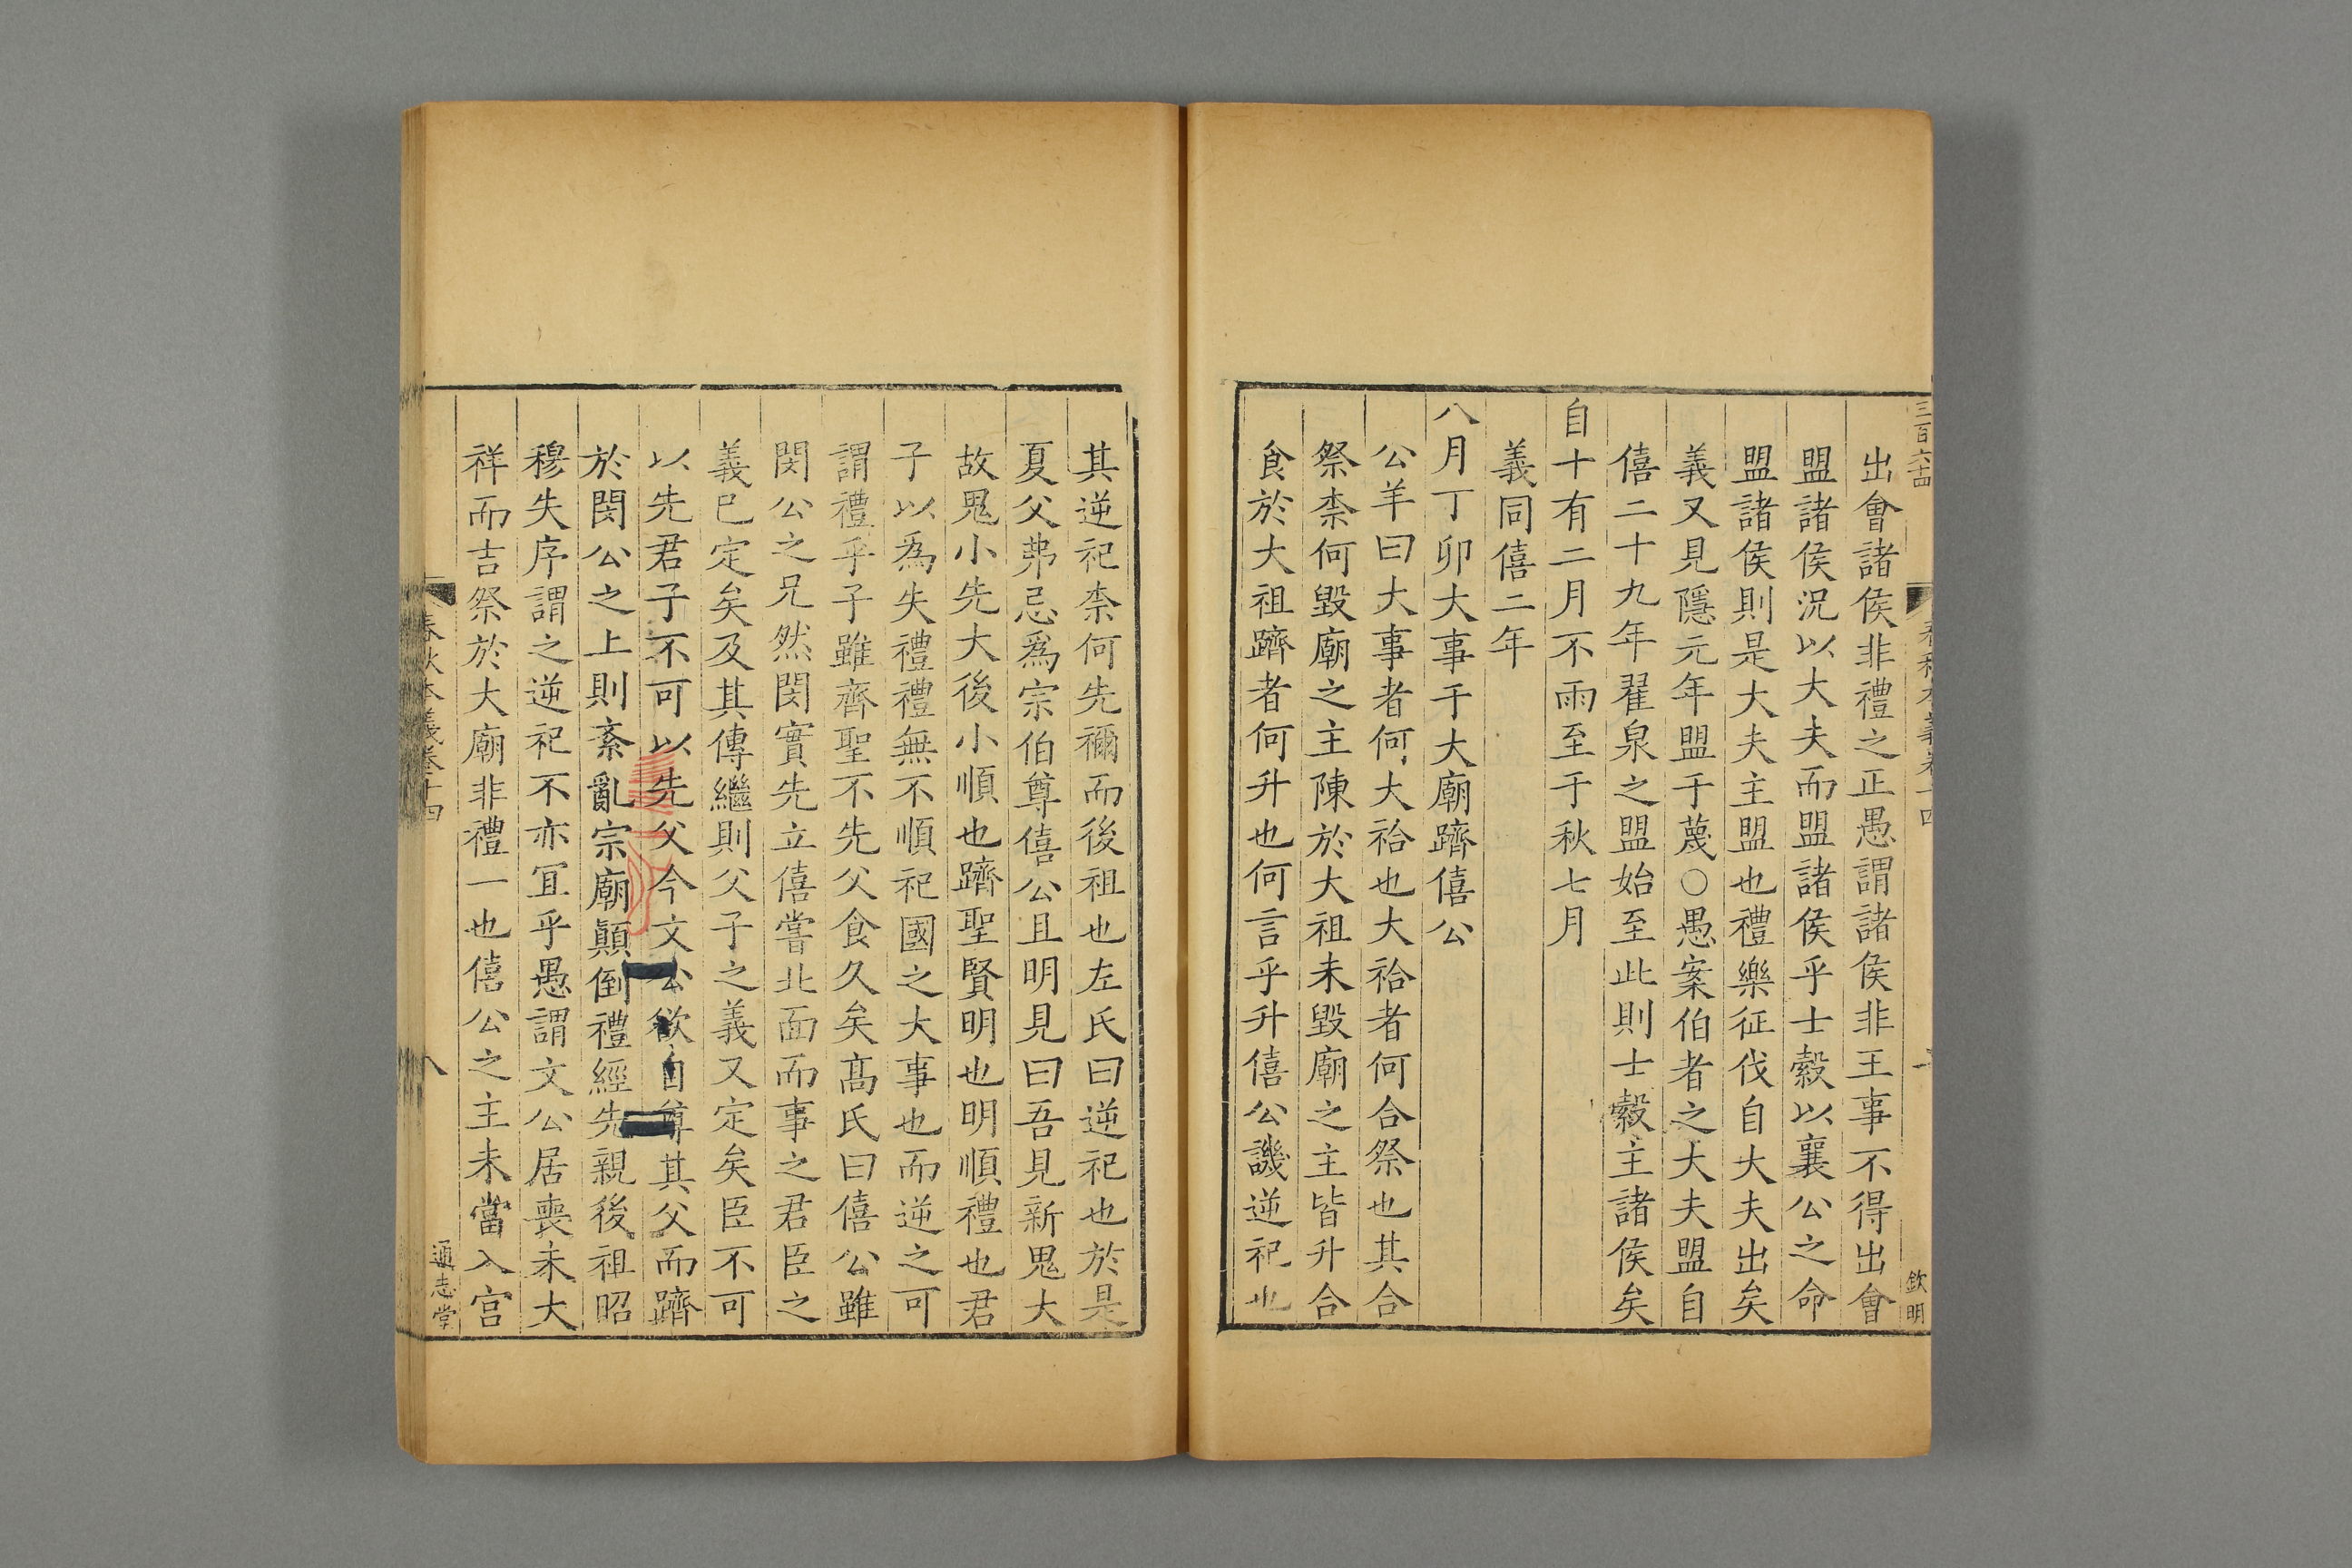 三百六十四
欽明
出會諸侯非禮之正愚謂諸侯非王事不得出會
盟諸侯況以大夫而盟諸侯乎士縠以襄公之命
盟諸侯則是大夫主盟也禮樂征伐自大夫出矣
義又見隱元年盟于蔑○愚案伯者之大夫盟自
僖二十九年翟泉之盟始至此則士縠主諸侯矣
自十有二月不雨至于秋七月
義同僖二年
八月丁卯大事于大廟躋僖公
公羊曰大事者何大祫也大祫者何合祭也其合
祭柰何毀廟之主陳於大祖未毀廟之主皆升合
食於大祖躋者何升也何言乎升僖公譏逆祀也
其逆祀柰何先禰而後祖也左氏曰逆祀也於是
夏父弗忌爲宗伯尊僖公且明見曰吾見新鬼大
故鬼小先大後小順也躋聖賢明也明順禮也君
子以爲失禮禮無不順祀國之大事也而逆之可
謂禮乎子雖齊聖不先父食久矣髙氏曰僖公雖
閔公之兄然閔實先立僖嘗北面而事之君臣之
義已定矣及其傳繼則父子之義又定矣臣不可
以先君子不可以先父今文公欲自尊其父而躋
於閔公之上則紊亂宗廟顚倒禮經先親後祖昭
穆失序謂之逆祀不亦冝乎愚謂文公居喪未大
祥而吉祭於大廟非禮一也僖公之主未當入宫
春秋本義卷十四
八
通志堂